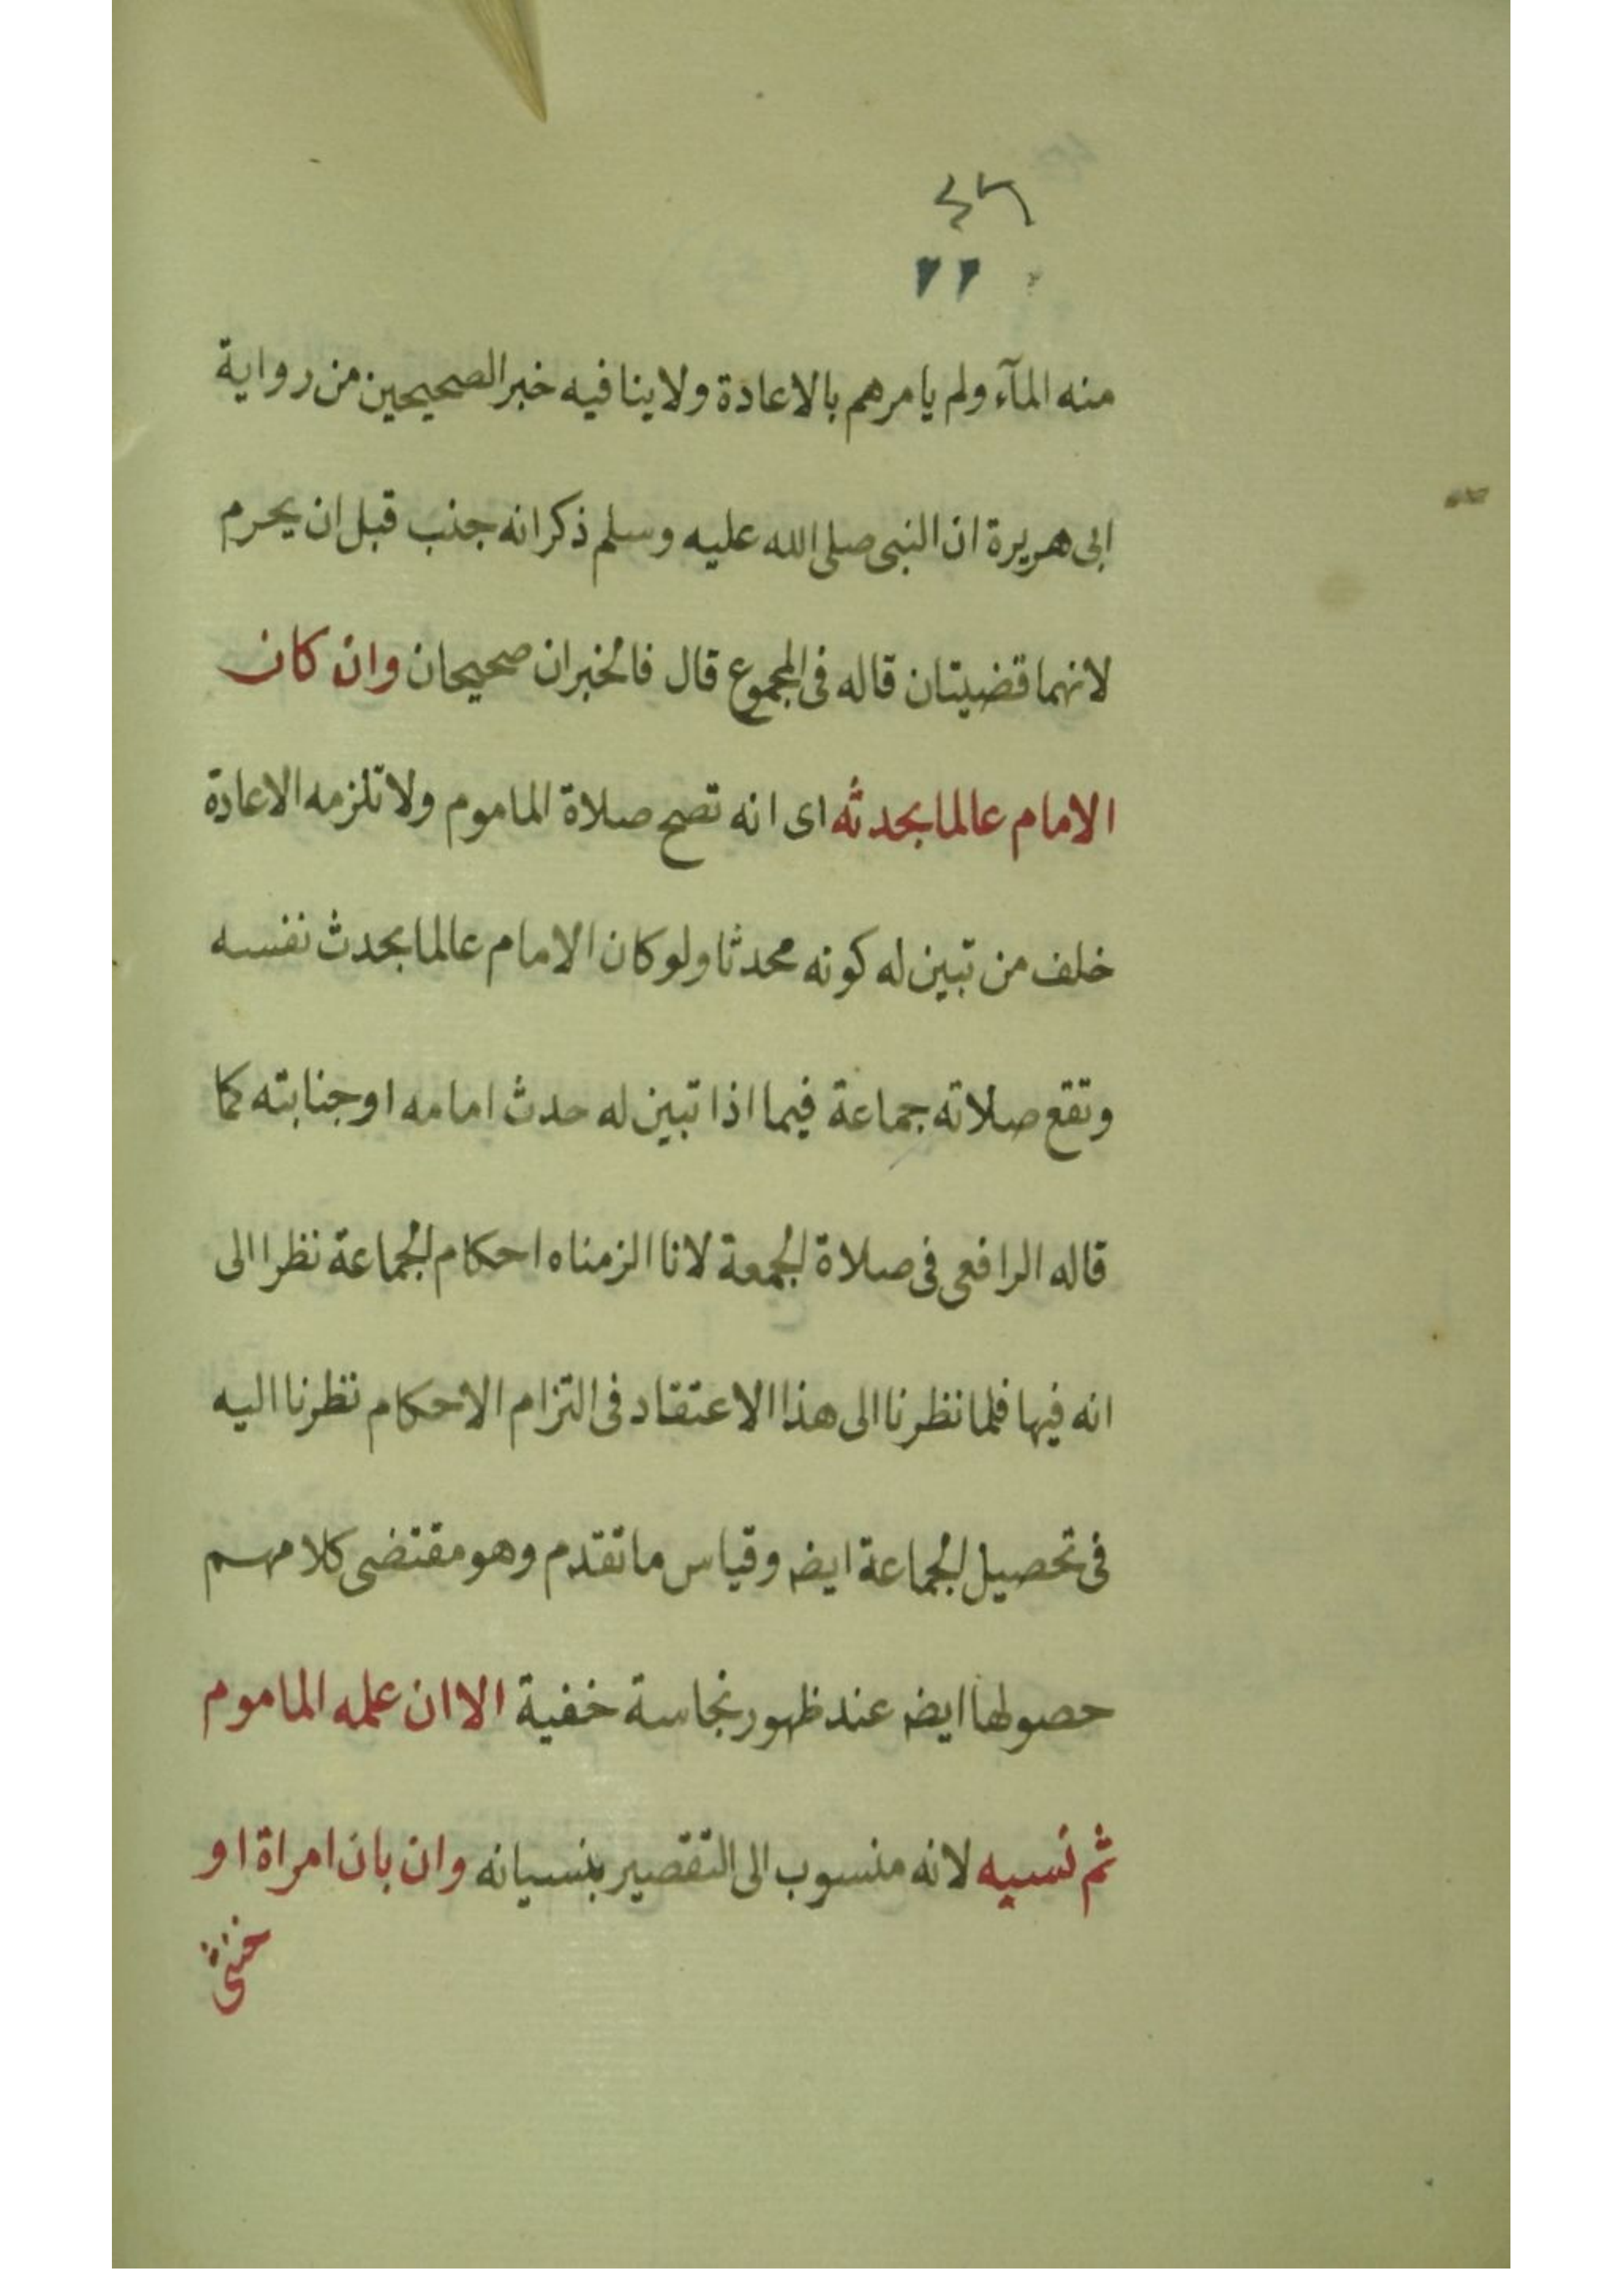 منه المآء ولم يامرهم بالاعادة ولاينافيه خبر الصحيحين من رواية
ابى هريرة ان النبى صلى الله عليه وسلم ذكر انه جنب قبل ان يحرم
لانهما قضيتان قاله فى المجموع قال فالخبران صحيحان وان كان
الامام عالما بحدثه اى انه تصح صلاة الماموم ولا تلزمه الاعادة
خلف من تبين له كونه محدثا ولو كان الامام عالما بحدث نفسه
وتقع صلاته جماعة فيما اذا تبين له حدث امامه او جنابته كما
قاله الرافعى فى صلاة الجمعة لانا الزمناه احكام الجماعة نظرا الى
انه فيها فلما نظرنا الى هذا الاعتقاد فى التزام الاحكام نظرنا اليه
فى تحصيل الجماعة ايضه وقياس ما تقدم وهو مقتضى كلامهم
حصولها ايضه عند ظهور نجاسة خفية الا ان علمه الماموم
ثم نسيه لانه منسوب الى التقصير بنسيانه وان بان امراة او
خنثى